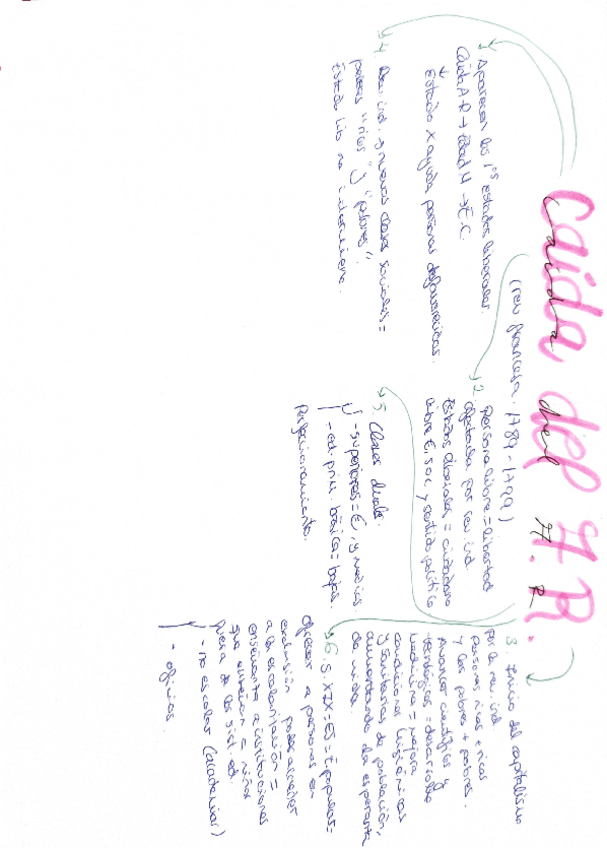 Caída del A.R.
(rev francesa. 1789-1799)
1. Aparecen los 1ºs estados liberales.
Caída A.R → Edad M → E.C
Estado x ayuda personas desfavorecidas.
2. Persona libre = libertad
afectada por rev ind.
Estados liberales = ciudadano
libre €, soc y sentido político
3. Inicio del capitalismo
por la rev. ind.
personas ricas + ricas
y las pobres + pobres.
Avances científicos y
tecnológicos = desarrollo
medicina = mejora
condiciones higiénicas
y sanitarias de población,
aumentando la esperanza
de vida.
4. Rev. ind. → nuevas clases sociales =
países "ricos" y "pobres",
Estado lib no interviene.
5. Clases duales.
- superiores = €, y medias.
- ed. prim. básica = bajas.
Perfeccionamiento.
6. S. XIX = ES = E popular =
ofrecer a personas en
exclusión poder acceder
a la escolarización =
enseñanza e instituciones
que nacían = niños
fuera de los sist. ed.
- no escolar (academias)
- oficios.